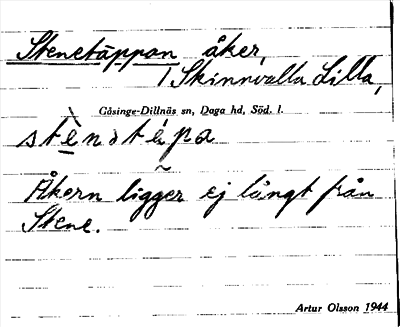 Stenetäppan åker,
/ Skinnvalla Lilla,
Gåsinge-Dillnäs sn, Daga hd, Söd. l.
stè̱nɔtépa
Åkern ligger ej långt från
Stene.
Artur Olsson 1944